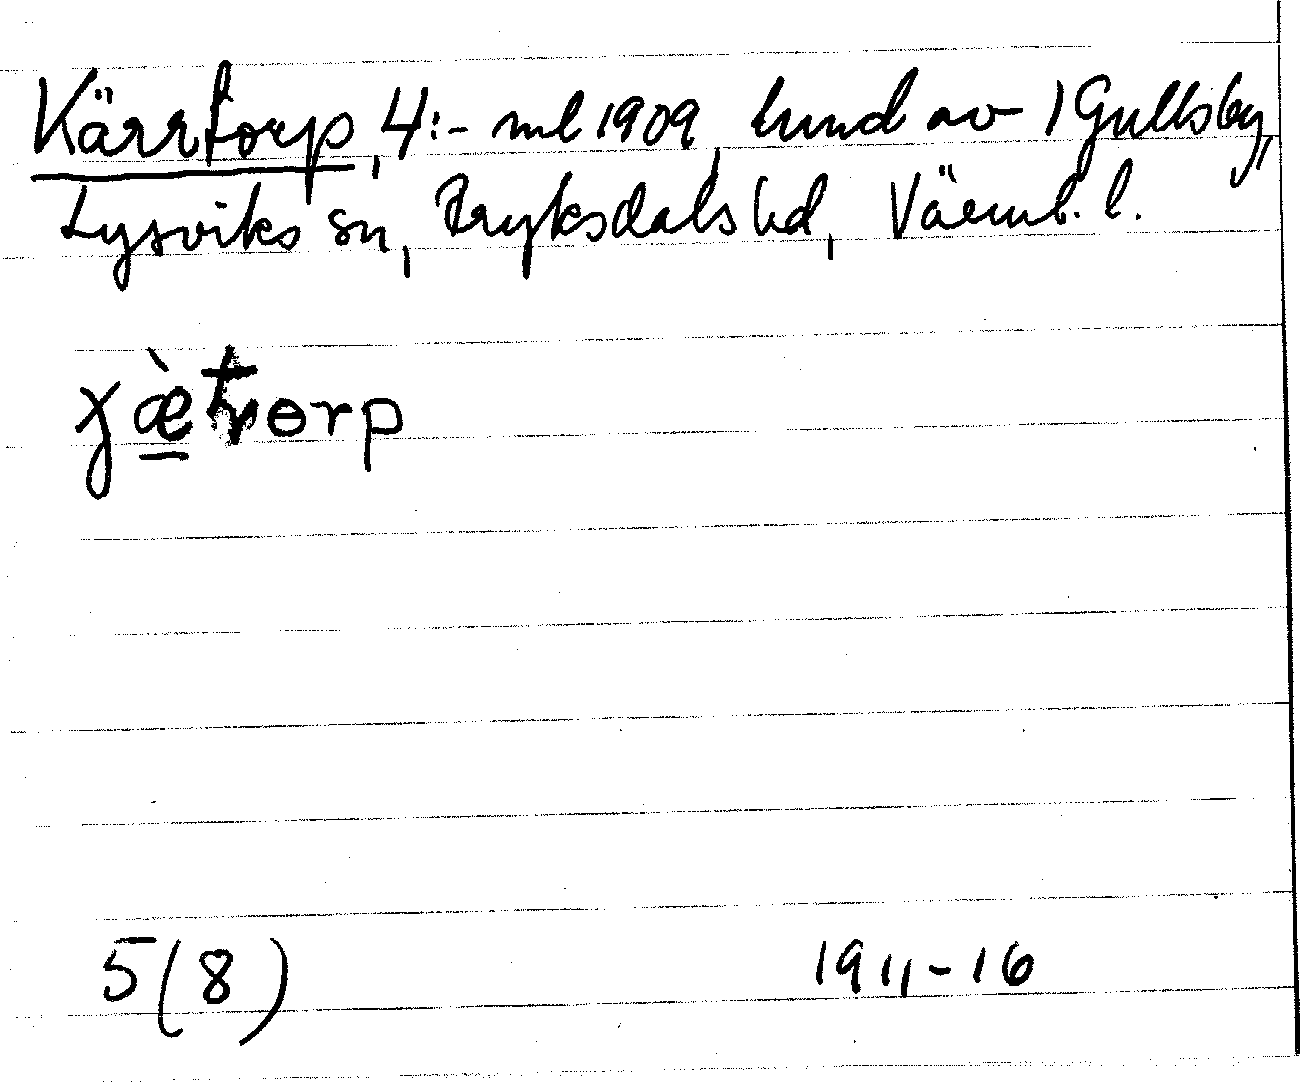 Kärrtorp, 4:- ml 1909, hmd av 1 Gullsby,
Lysviks sn, Fryksdals hd, Värml. l.
ɣæ̀tɵrp
5(8) 1911-16